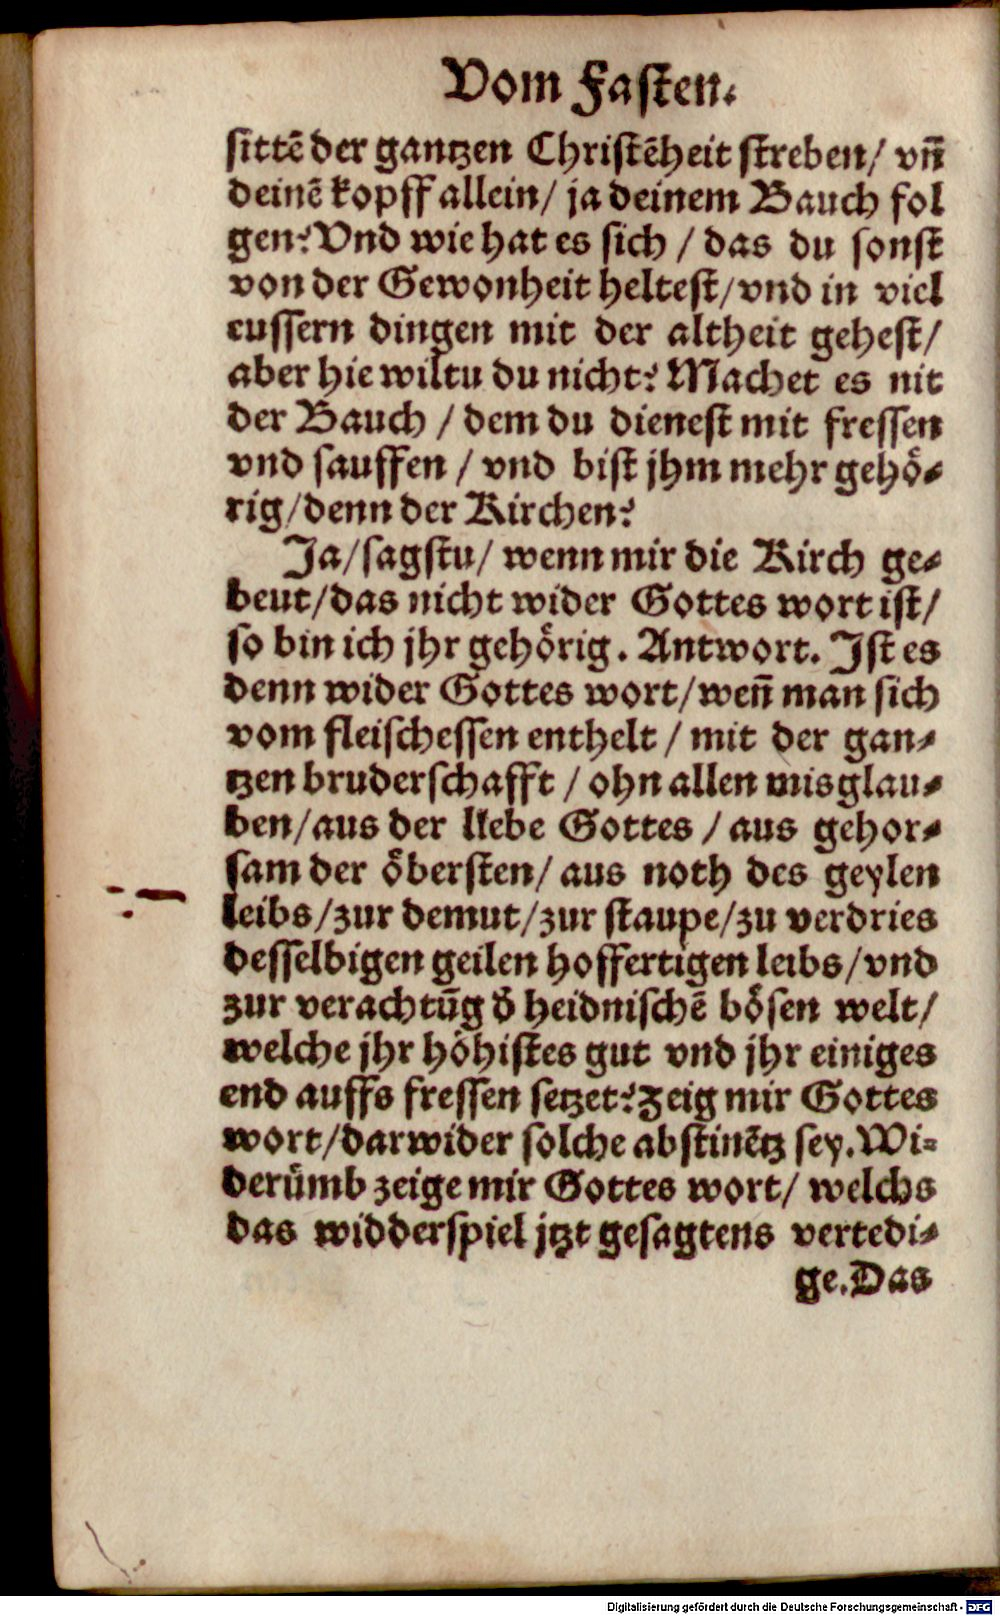 Vom Fasten.
sittē der gantzen Christēheit streben/ vñ
deinē kopff allein/ ja deinem Bauch fol
gen? Vnd wie hat es sich / das du sonst
von der Gewonheit heltest/ vnd in viel
eussern dingen mit der altheit gehest/
aber hie wiltu du nicht? Machet es nit
der Bauch / dem du dienest mit fressen
vnd sauffen / vnd bist jhm mehr gehö-
rig/ denn der Kirchen?
Ja/ sagstu/ wenn mir die Kirch ge-
beut/ das nicht wider Gottes wort ist/
so bin ich jhr gehörig. Antwort. Ist es
denn wider Gottes wort/ weñ man sich
vom fleischessen enthelt / mit der gan-
tzen bruderschafft / ohn allen misglau-
ben/ aus der liebe Gottes / aus gehor-
sam der öbersten/ aus noth des geylen
leibs/ zur demut/ zur staupe/ zu verdries
desselbigen geilen hoffertigen leibs/ vnd
zur verachtūg d̄ heidnischē bösen welt/
welche jhr höhistes gut vnd jhr einiges
end auffs fressen setzet? Zeig mir Gottes
wort/ darwider solche abstinētz sey. Wi-
derümb zeige mir Gottes wort/ welchs
das widderspiel jtzt gesagtens vertedi-
ge. Das
Digitalisierung gefördert durch die Deutsche Forschungsgemeinschaft - DFG